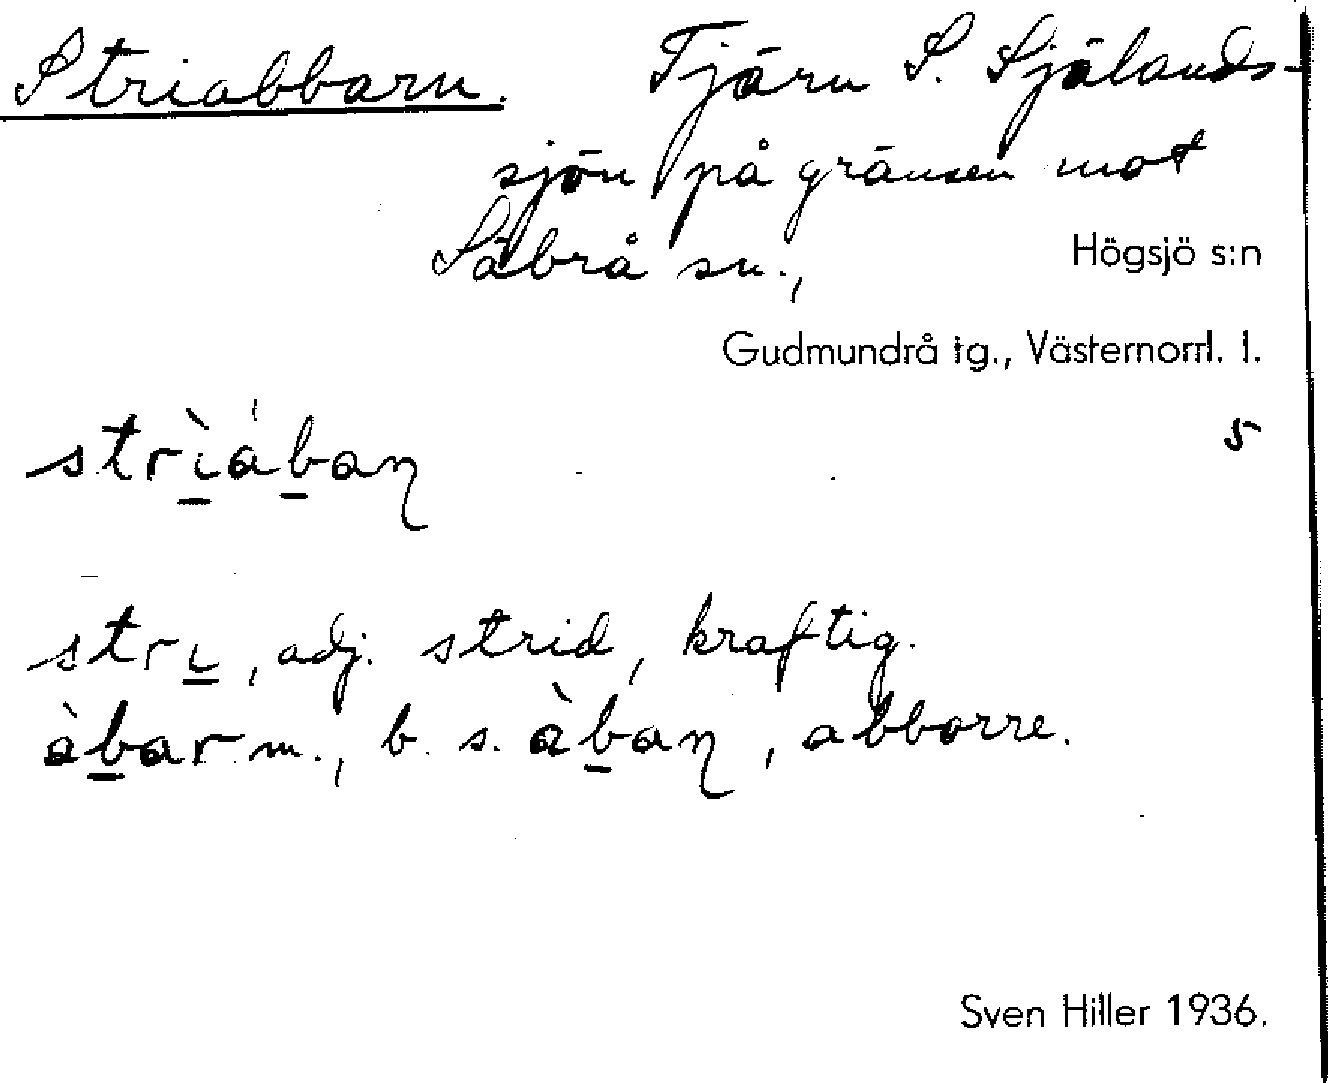 Striabbarn. Tjärn S. Själands-
sjön på gränsen mot
Säbrå sn.,
Högsjö s:n
Gudmundrå tg., Västernorrl. l.
5
strı̲̀áb̲aꞃ
strı̲, adj. strid, kraftig.
àb̲ar m., b. s. àb̲aꞃ, abborre.
Sven Hiller 1936.